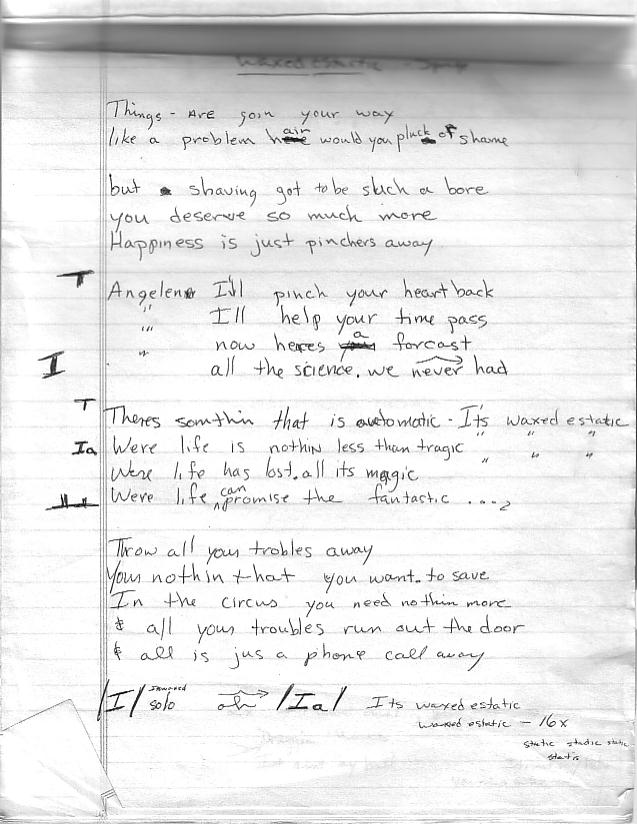 Waxed estatic
Things - ARE goin your way
like a problem hair would you pluck of shame
but shaving got to be such a bore
you deserve so much more
Happiness is just pinchers away
T
Angelena I'll pinch your heart back
" I'll help your time pass
"' now heres a forcast
I " all the science. we never had
T
Theres somthin that is automatic - It's waxed estatic
Ia Were life is nothin less than tragic " " "
Were life has lost. all its magic " " "
Were life can promise the fantastic ....?
Throw all your trobles away
Your nothin that you want. to save
In the circus you need nothin more
& all your troubles run out the door
& all is jus a phone call away
/I/ solo oh /Ia/ Its waxed estatic
waxed estatic - 16x
static stadic static
static